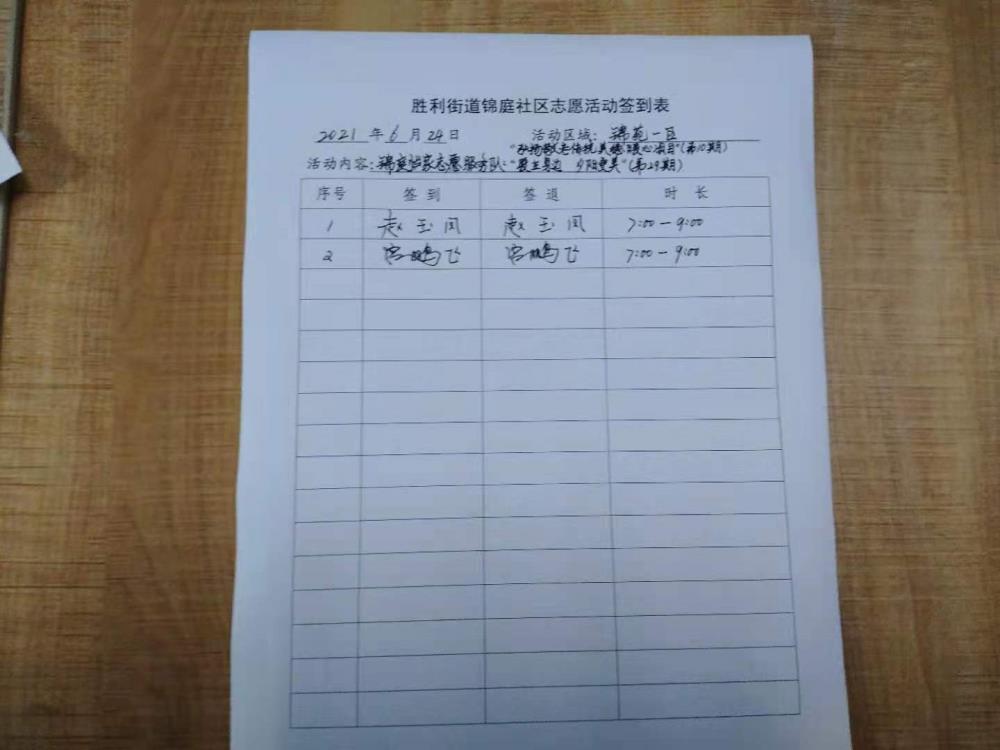 胜利街道锦庭社区志愿活动签到表
2021 年 6 月 24 日 活动区域: 锦苑一区
"弘扬敬老传统美德暖心项目"(第10期)
活动内容: 锦庭 家志愿服务队: "爱在身边 夕阳更美"(第29期)
序号 签到 签退 时长
1 赵玉凤 赵玉凤 7:00-9:00
2 宫鹏飞 宫鹏飞 7:00-9:00